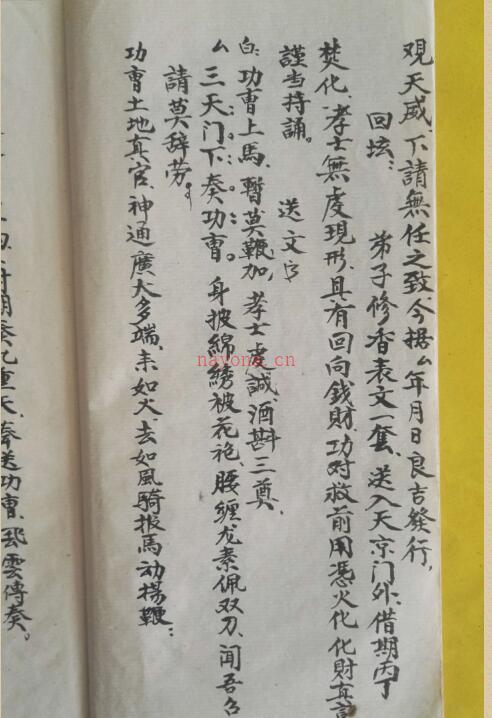 观天威、下請無任之致今据厶年月日良吉發行,
回坛: 弟子修香表文一套、送入天京门外、借期丙丁
焚化、孝士無虔現形、具有回向錢財、功对救前用憑火化、化財真言
謹当持誦。 送文字
白:功曹上馬、暫莫鞭加、孝士虔誠酒斟三奠、
厶三天门下奏功曹。身披綿綉被花袍、腰纏龙素佩双刀、闻吾召
請莫辞劳。
功曹土地真官、神通廣大多端、来如火、去如風騎报馬动揚鞭:
奏九重天、奉送功曹、飛雲傳奏。
nayona.cn